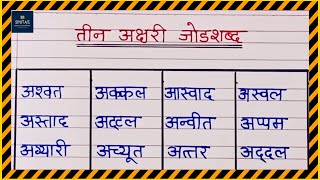 तीन अक्षरी जोडशब्द
अश्वत अक्कल आस्वाद अस्वल
अस्ताद अट्टल अन्वीत अप्पम
अग्यारी अच्यूत अत्तर अद्दल